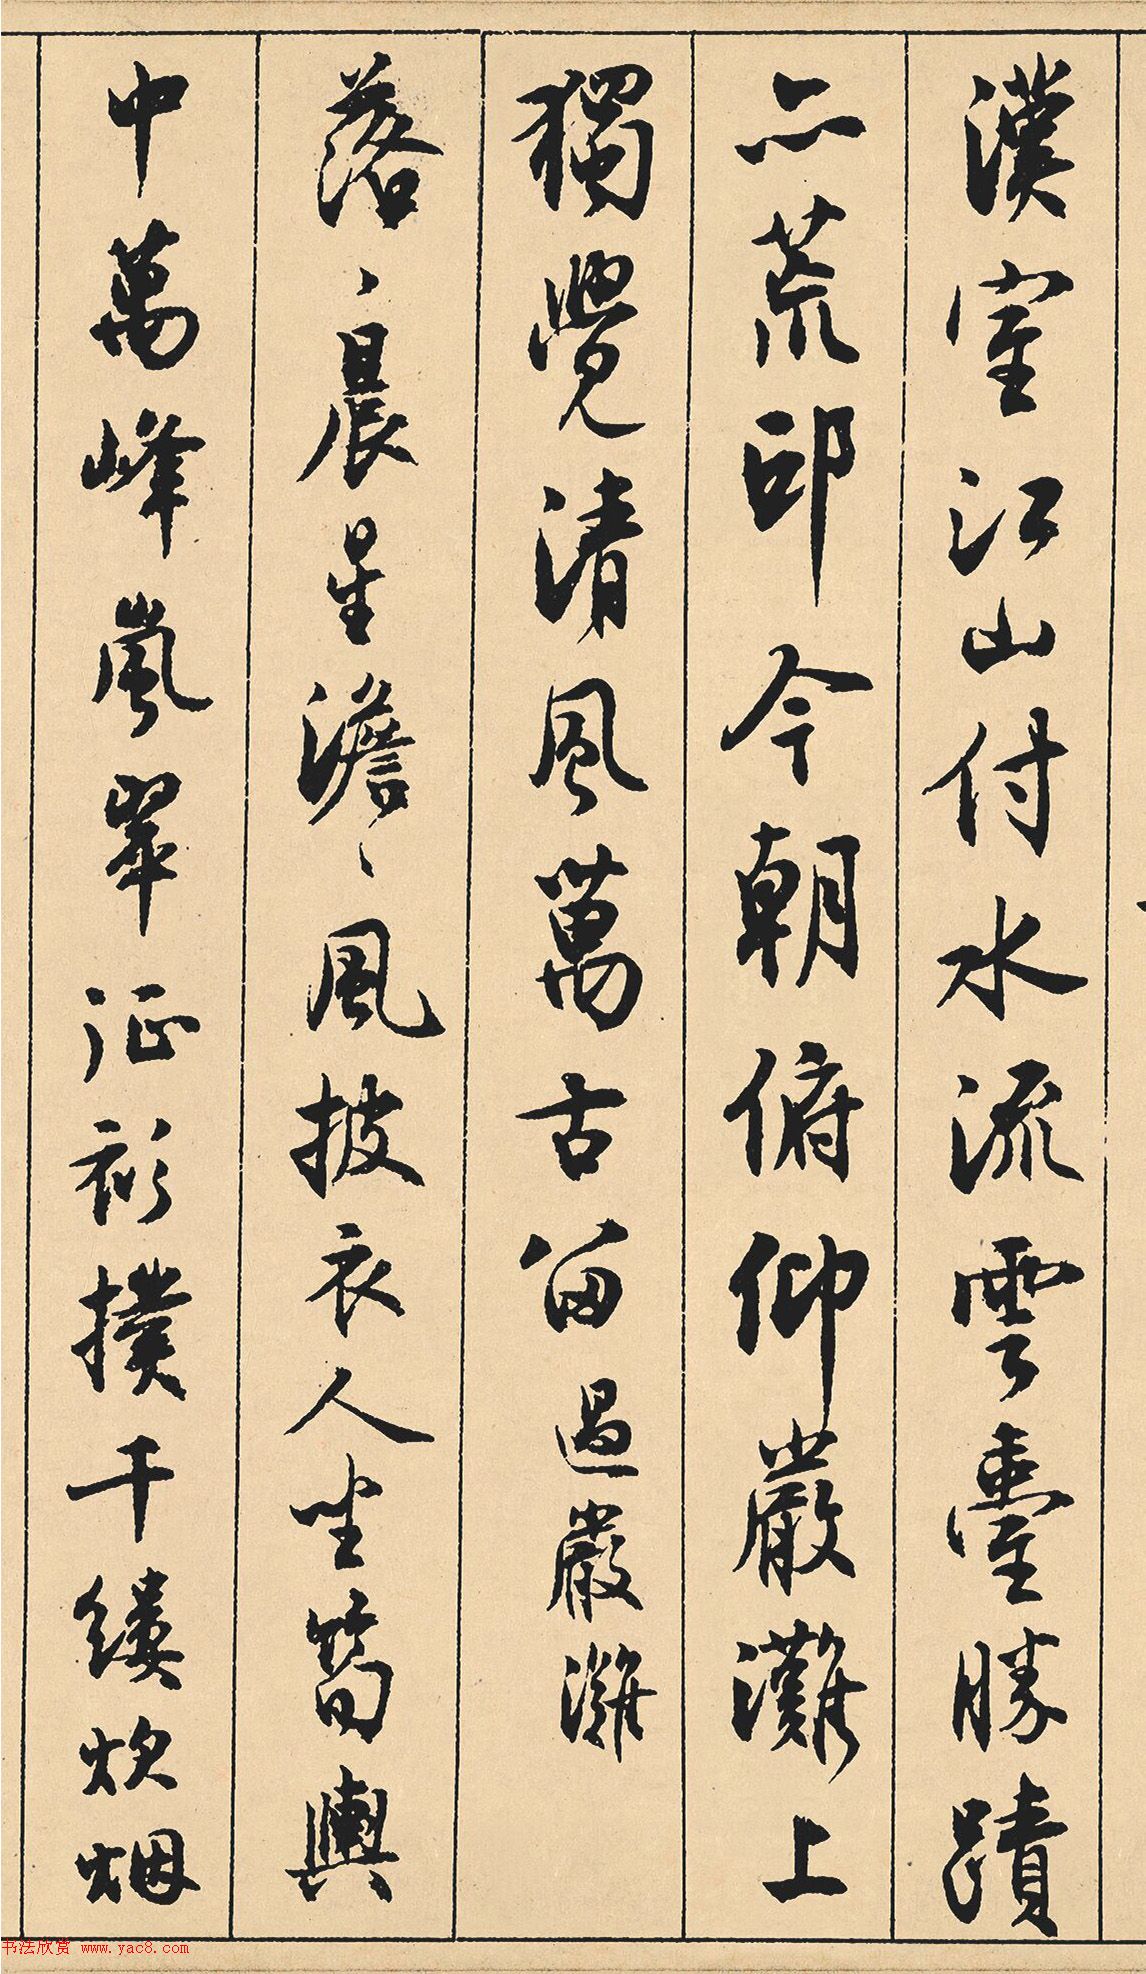 漢室江山付水流雲臺勝蹟
亦荒邱今朝俯仰嚴灘上
獨覺清風萬古留過嚴灘
落〻晨星澹〻風披衣人坐筍輿
中萬峰嵐翠征衫撲千縷炊烟
书法欣赏 www.yac8.com